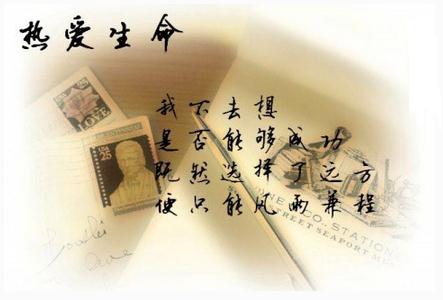 热爱生命
我不去想
是否能够成功
既然选择了远方
便只能风雨兼程
LOVE
25
CO., STATION
STREET SEAPORT